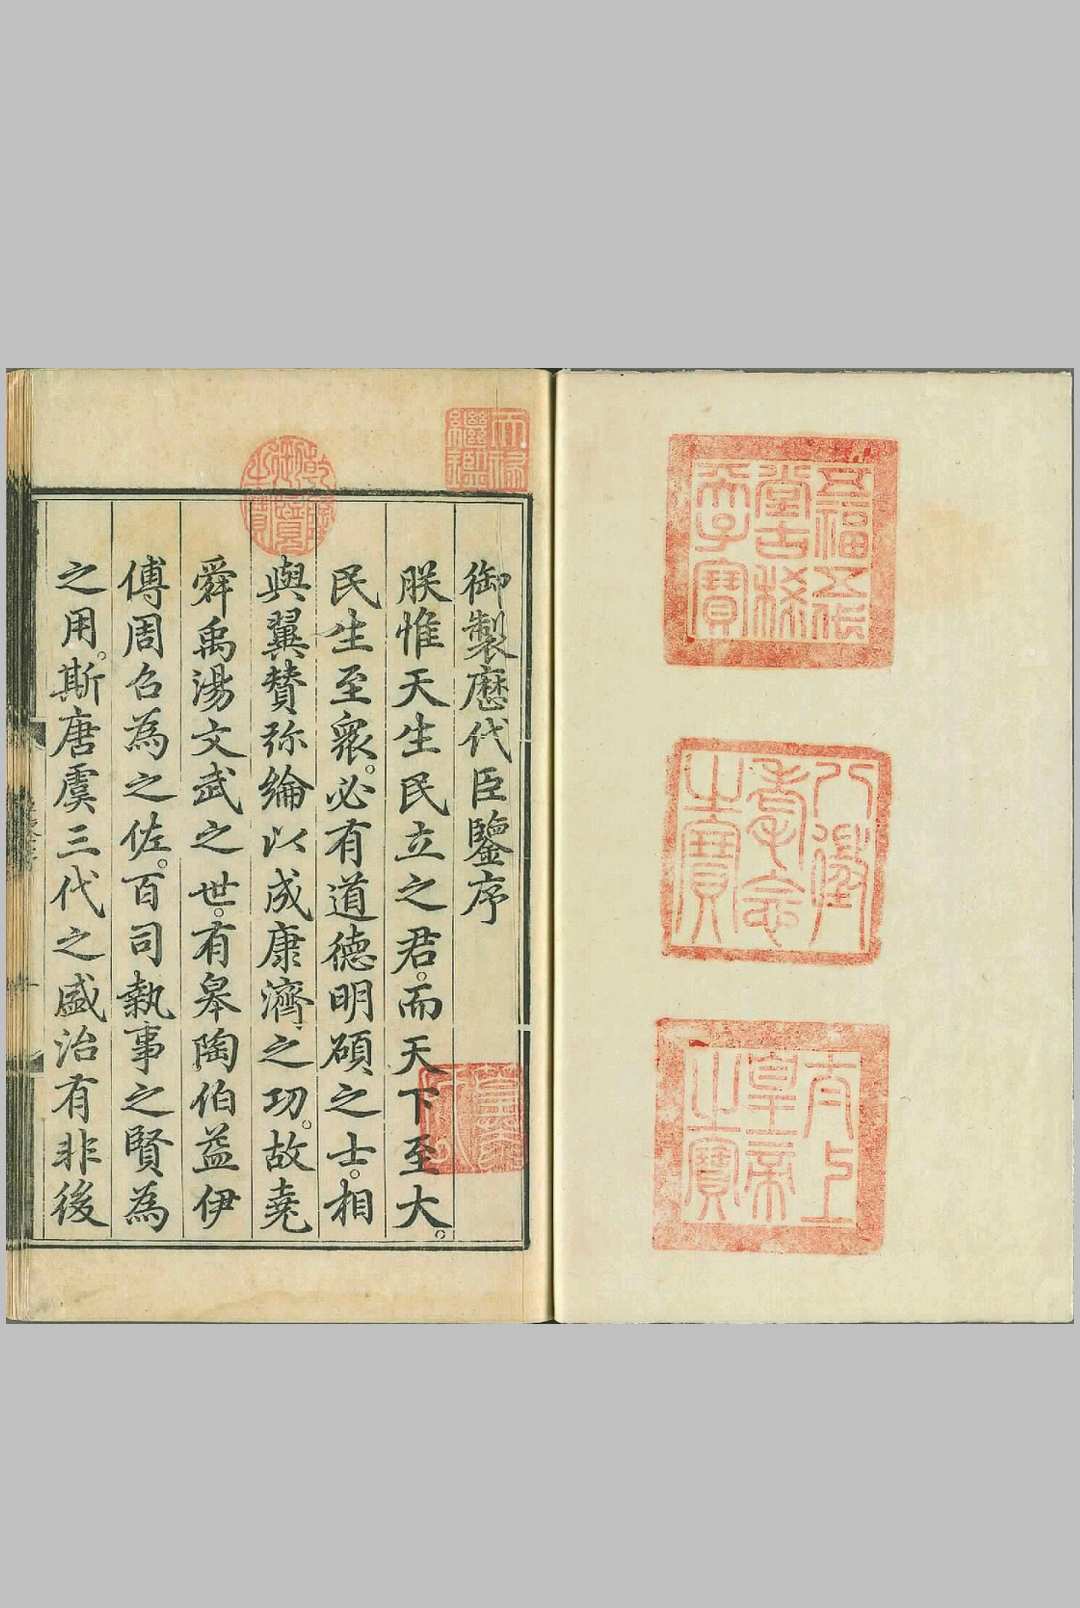 五福五代
堂古稀
天子寶
八徵
耄念
之寶
太上
皇帝
之寶
天祿
繼鑑
乾隆
御覽
之寶
御製歷代臣鑒序
朕惟天生民立之君。而天下至大。
民生至衆。必有道德明碩之士。相
與翼贊弥綸以成康濟之功。故堯
舜禹湯文武之世。有皋陶伯益伊
傅周召為之佐。百司執事之賢為
之用。斯唐虞三代之盛治有非後